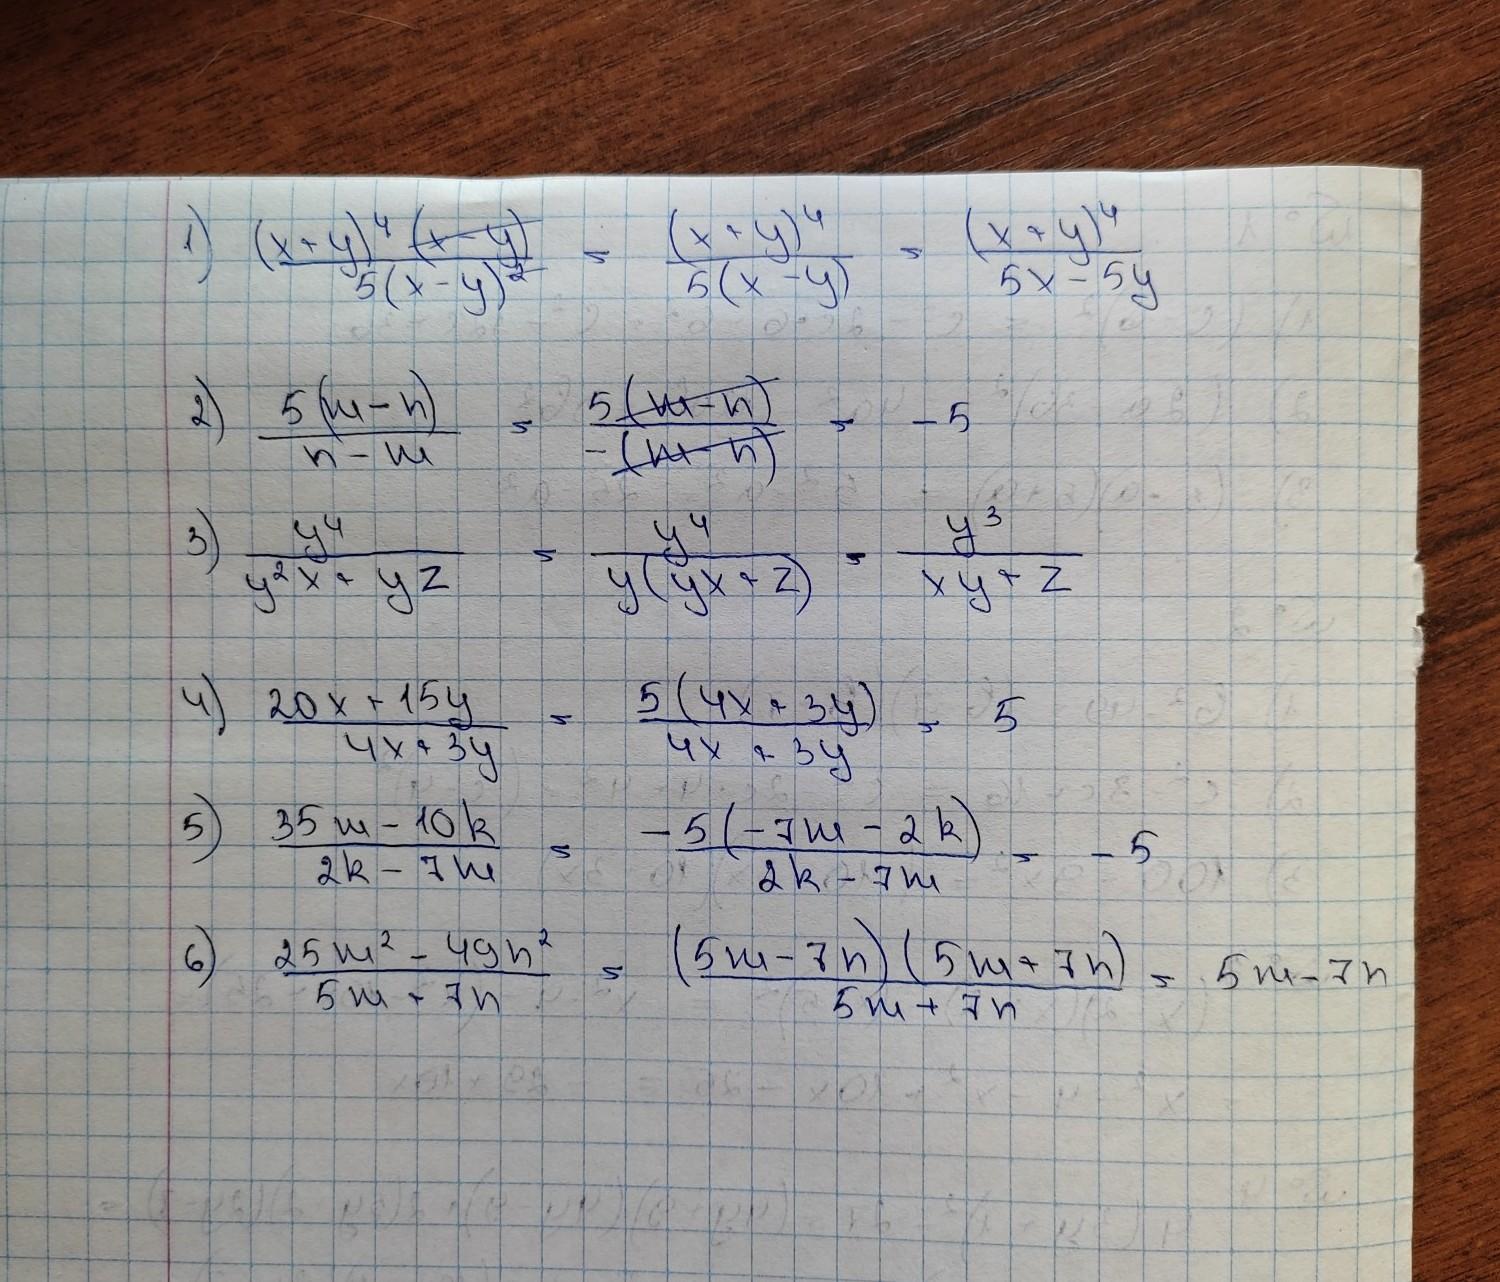 1) (x+y)⁴(x-y) / 5(x-y)² = (x+y)⁴ / 5(x-y) = (x+y)⁴ / 5x-5y
2) 5(m-n) / n-m = 5(m-n) / -(m-n) = -5
3) y⁴ / y²x+yz = y⁴ / y(yx+z) = y³ / xy+z
4) 20x+15y / 4x+3y = 5(4x+3y) / 4x+3y = 5
5) 35m-10k / 2k-7m = -5(-7m-2k) / 2k-7m = -5
6) 25m²-49n² / 5m+7n = (5m-7n)(5m+7n) / 5m+7n = 5m-7n